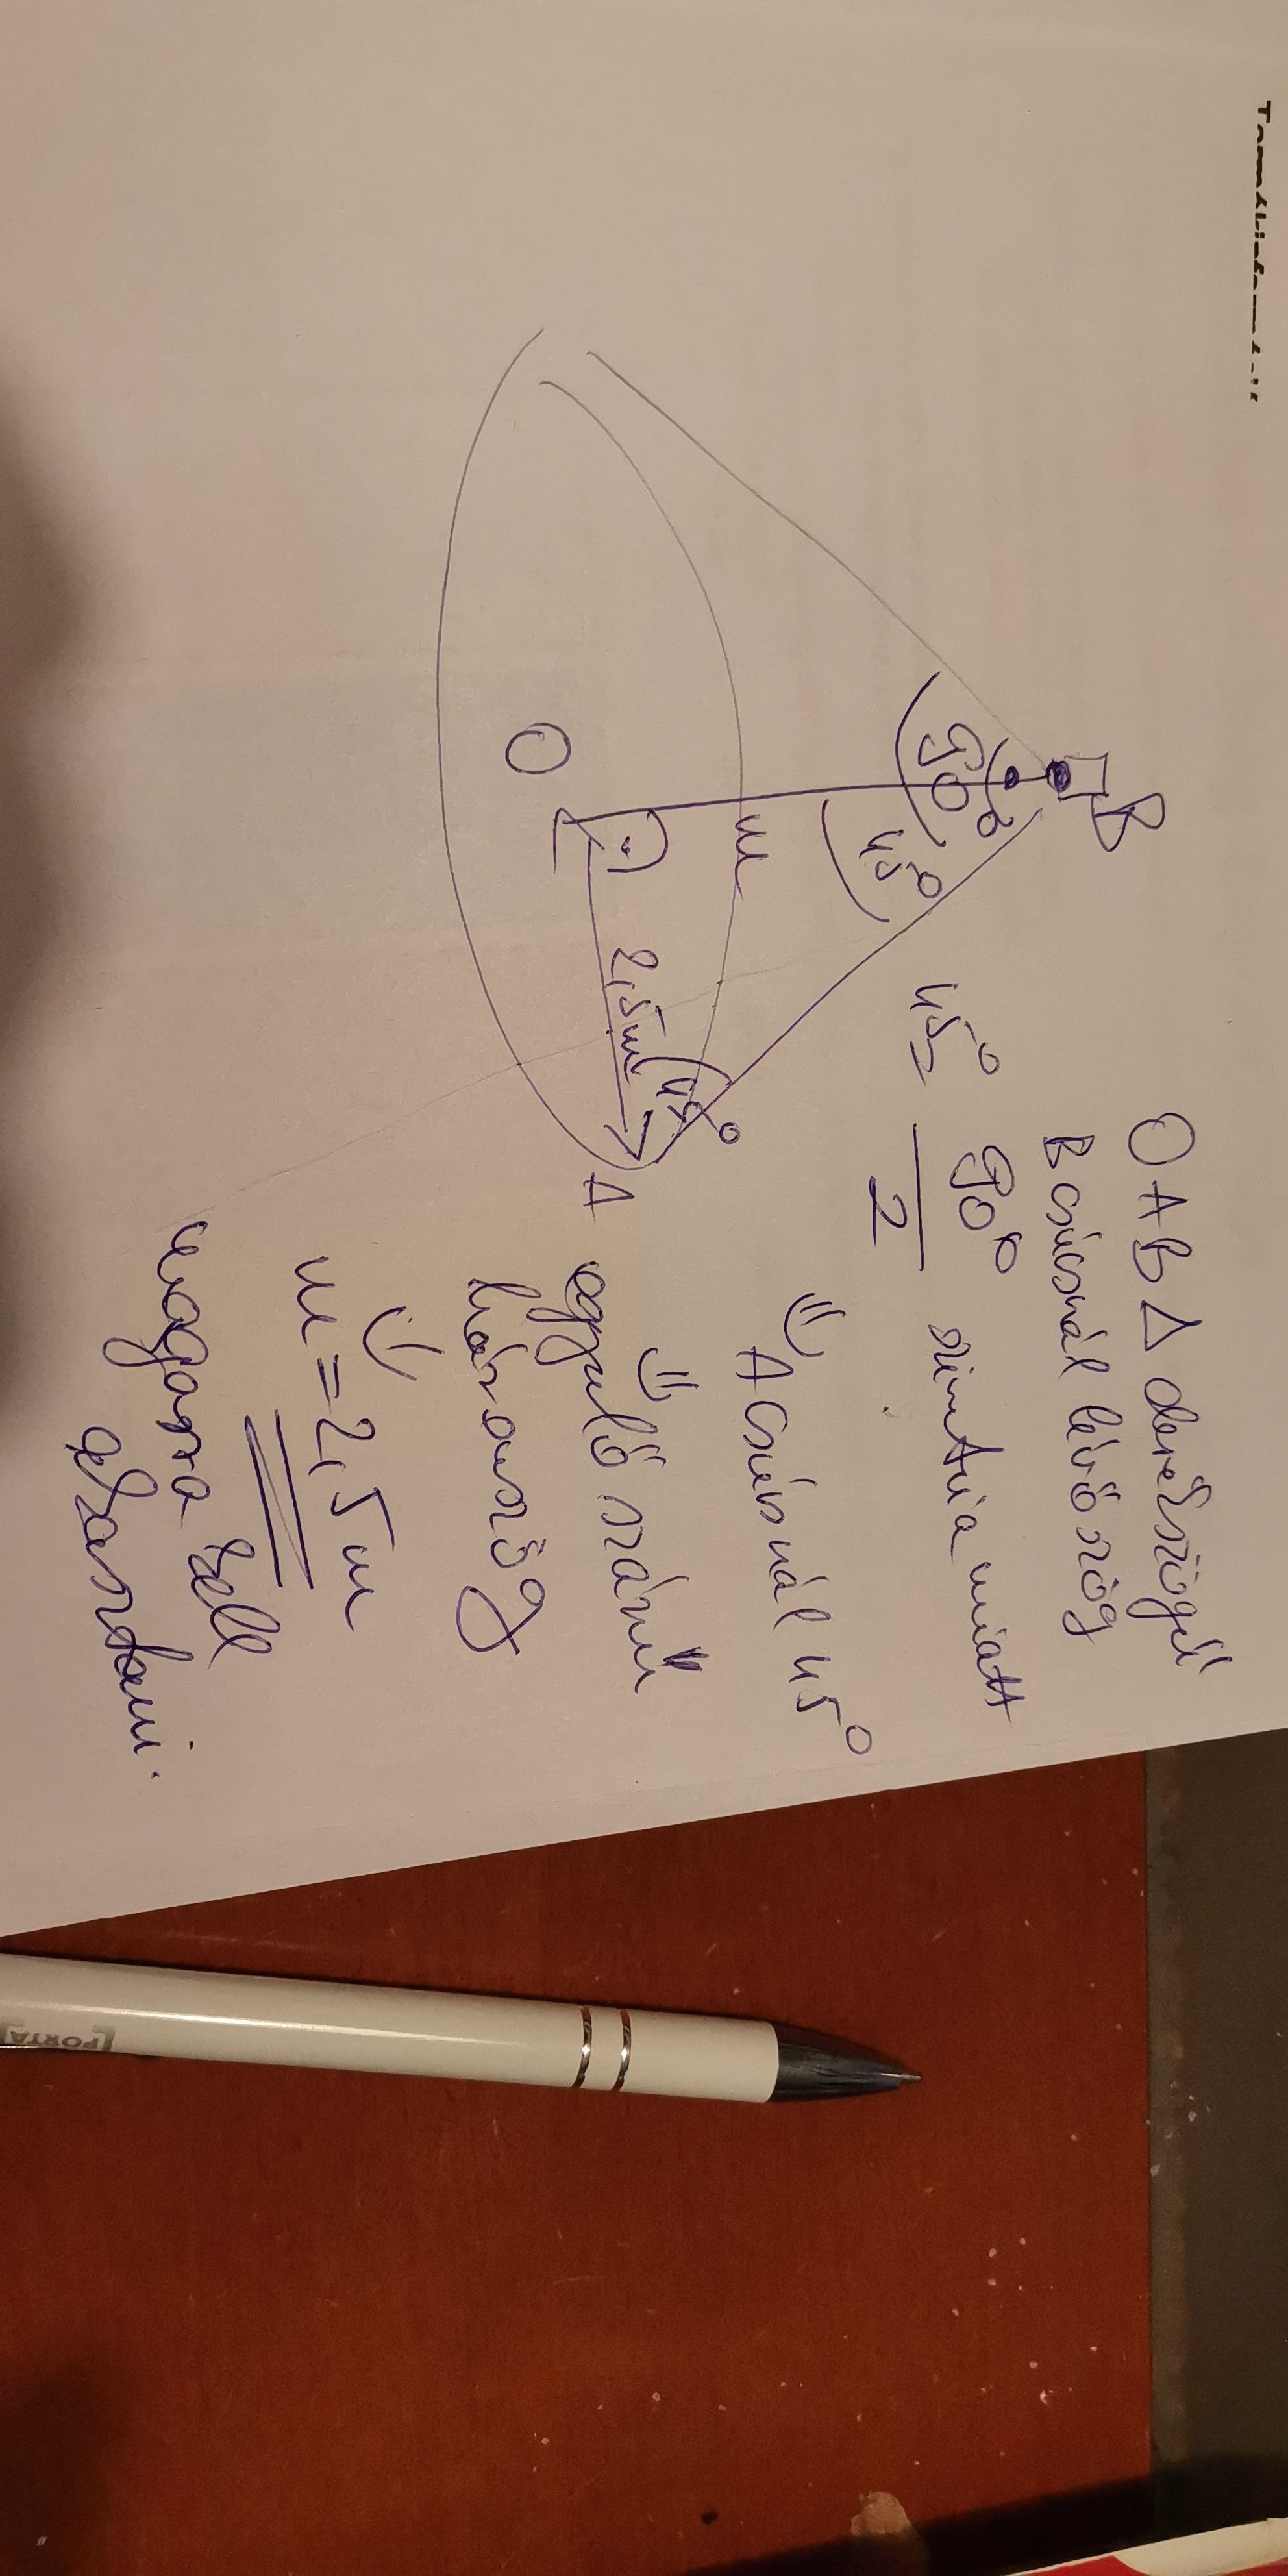 B
90°
45°
m
O
2,5m
45°
A
OAB△ derékszögű
B csúcsnál lévő szög
45° = 90°/2 szimmetria miatt
⇓
A csúcsnál 45°
⇓
egyenlő szárú
háromszög
⇓
m = 2,5 m
magasra kell
akasztani.
PORTA